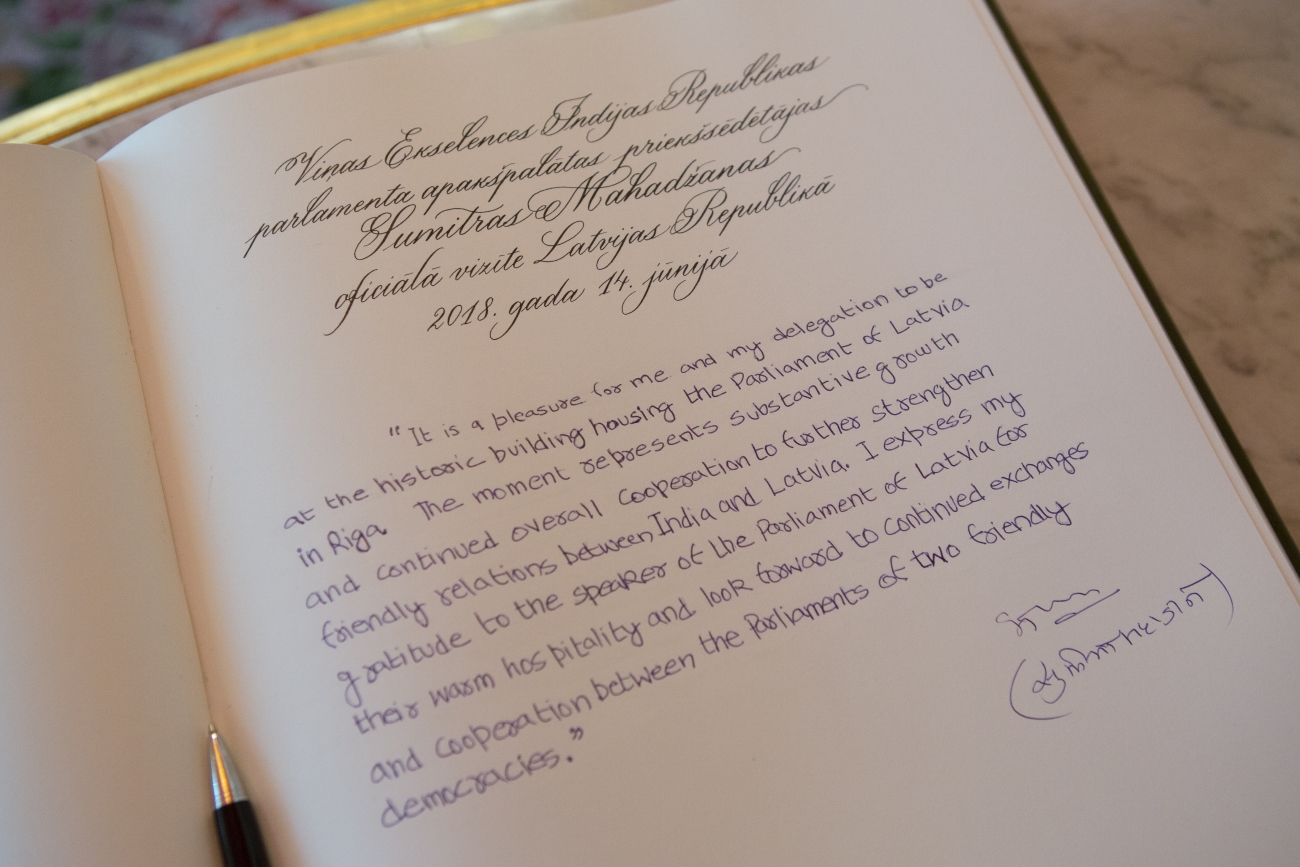 Viņas Ekselences Indijas Republikas
parlamenta apakšpalātas priekšsēdētājas
Sumitras Mahadžanas
oficiālā vizīte Latvijas Republikā
2018. gada 14. jūnijā
"It is a pleasure for me and my delegation to be
at the historic building housing the Parliament of Latvia
in Riga. The moment represents substantive growth
and continued overall cooperation to further strengthen
friendly relations between India and Latvia. I express my
gratitude to the speaker of the Parliament of Latvia for
their warm hospitality and look forward to continued exchanges
and cooperation between the Parliaments of two friendly
democracies."